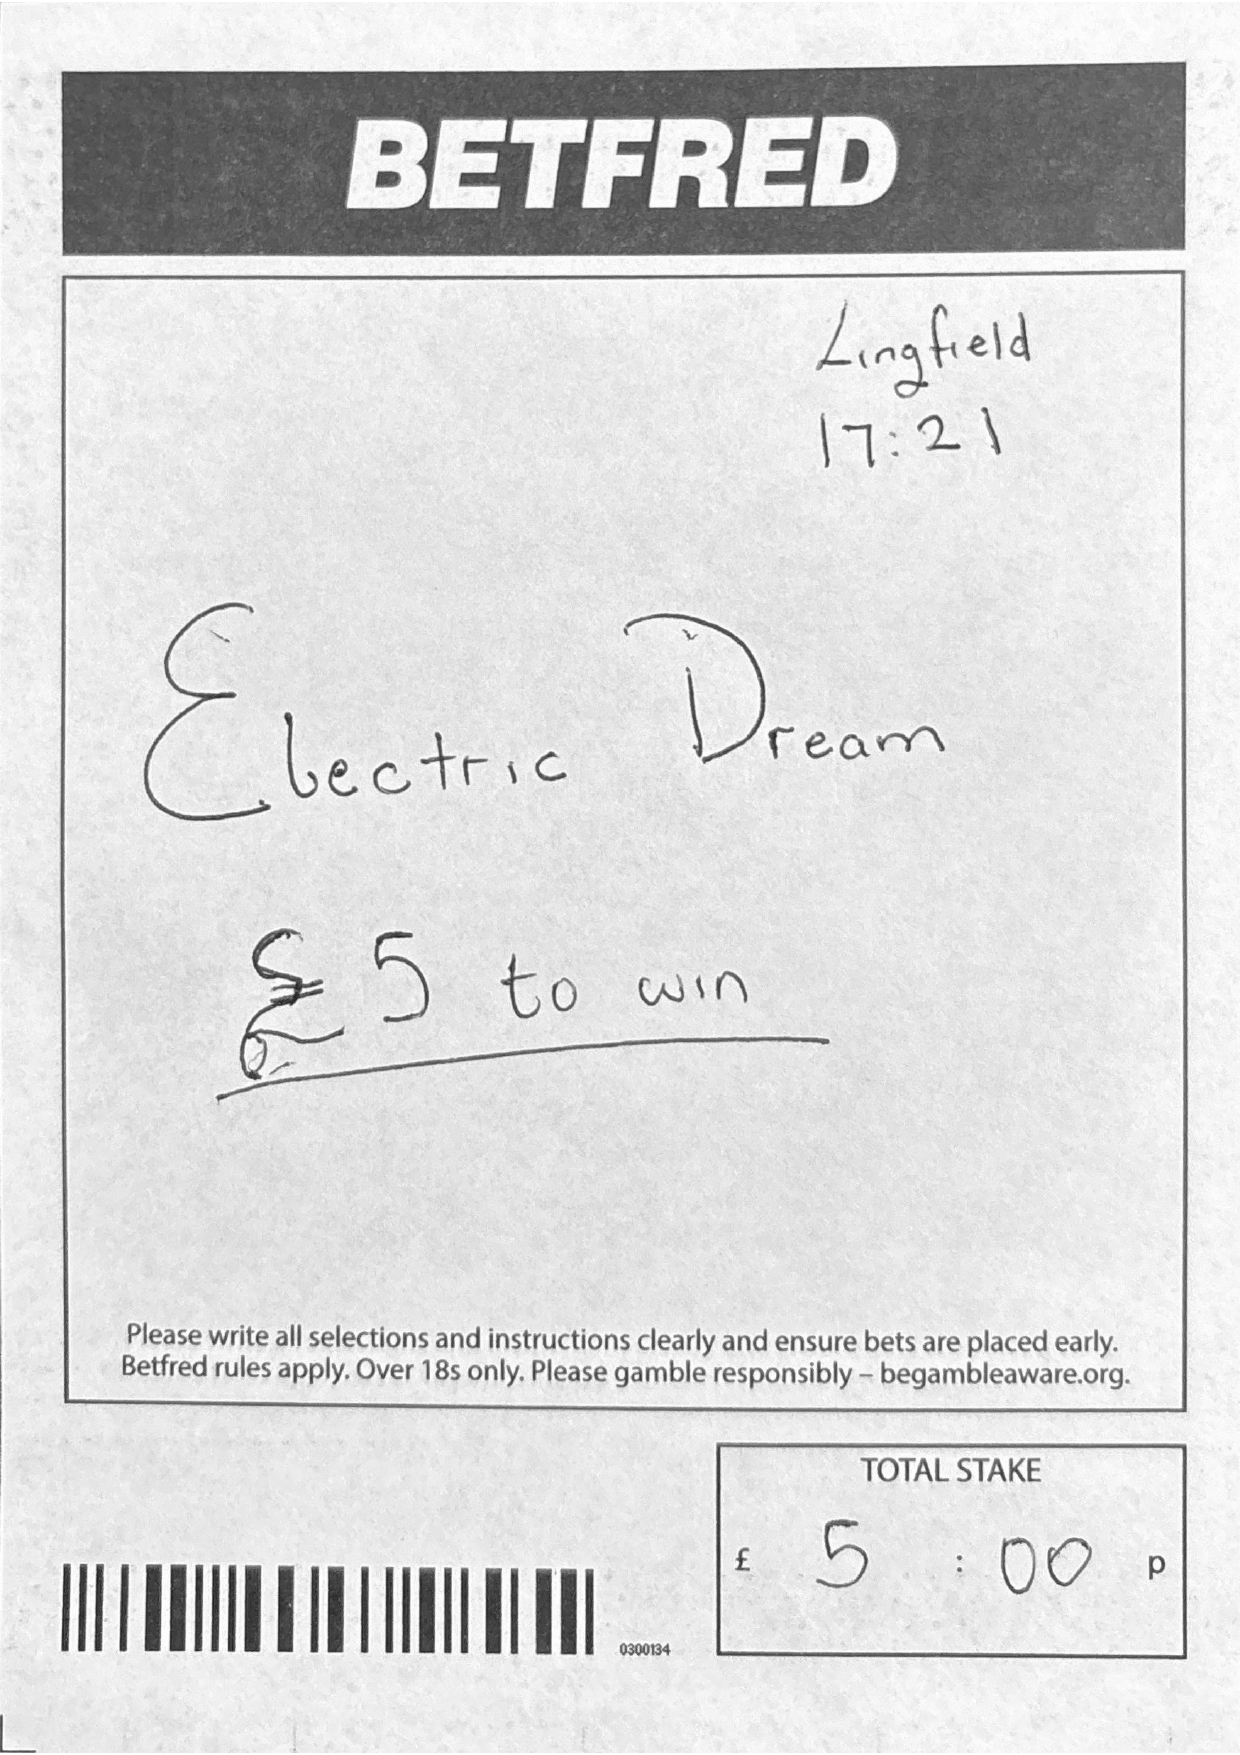 BETFRED
Lingfield
17:21
Electric Dream
£5 to win
Please write all selections and instructions clearly and ensure bets are placed early.
Betfred rules apply. Over 18s only. Please gamble responsibly – begambleaware.org.
TOTAL STAKE
£ 5 : 00 p
0300134